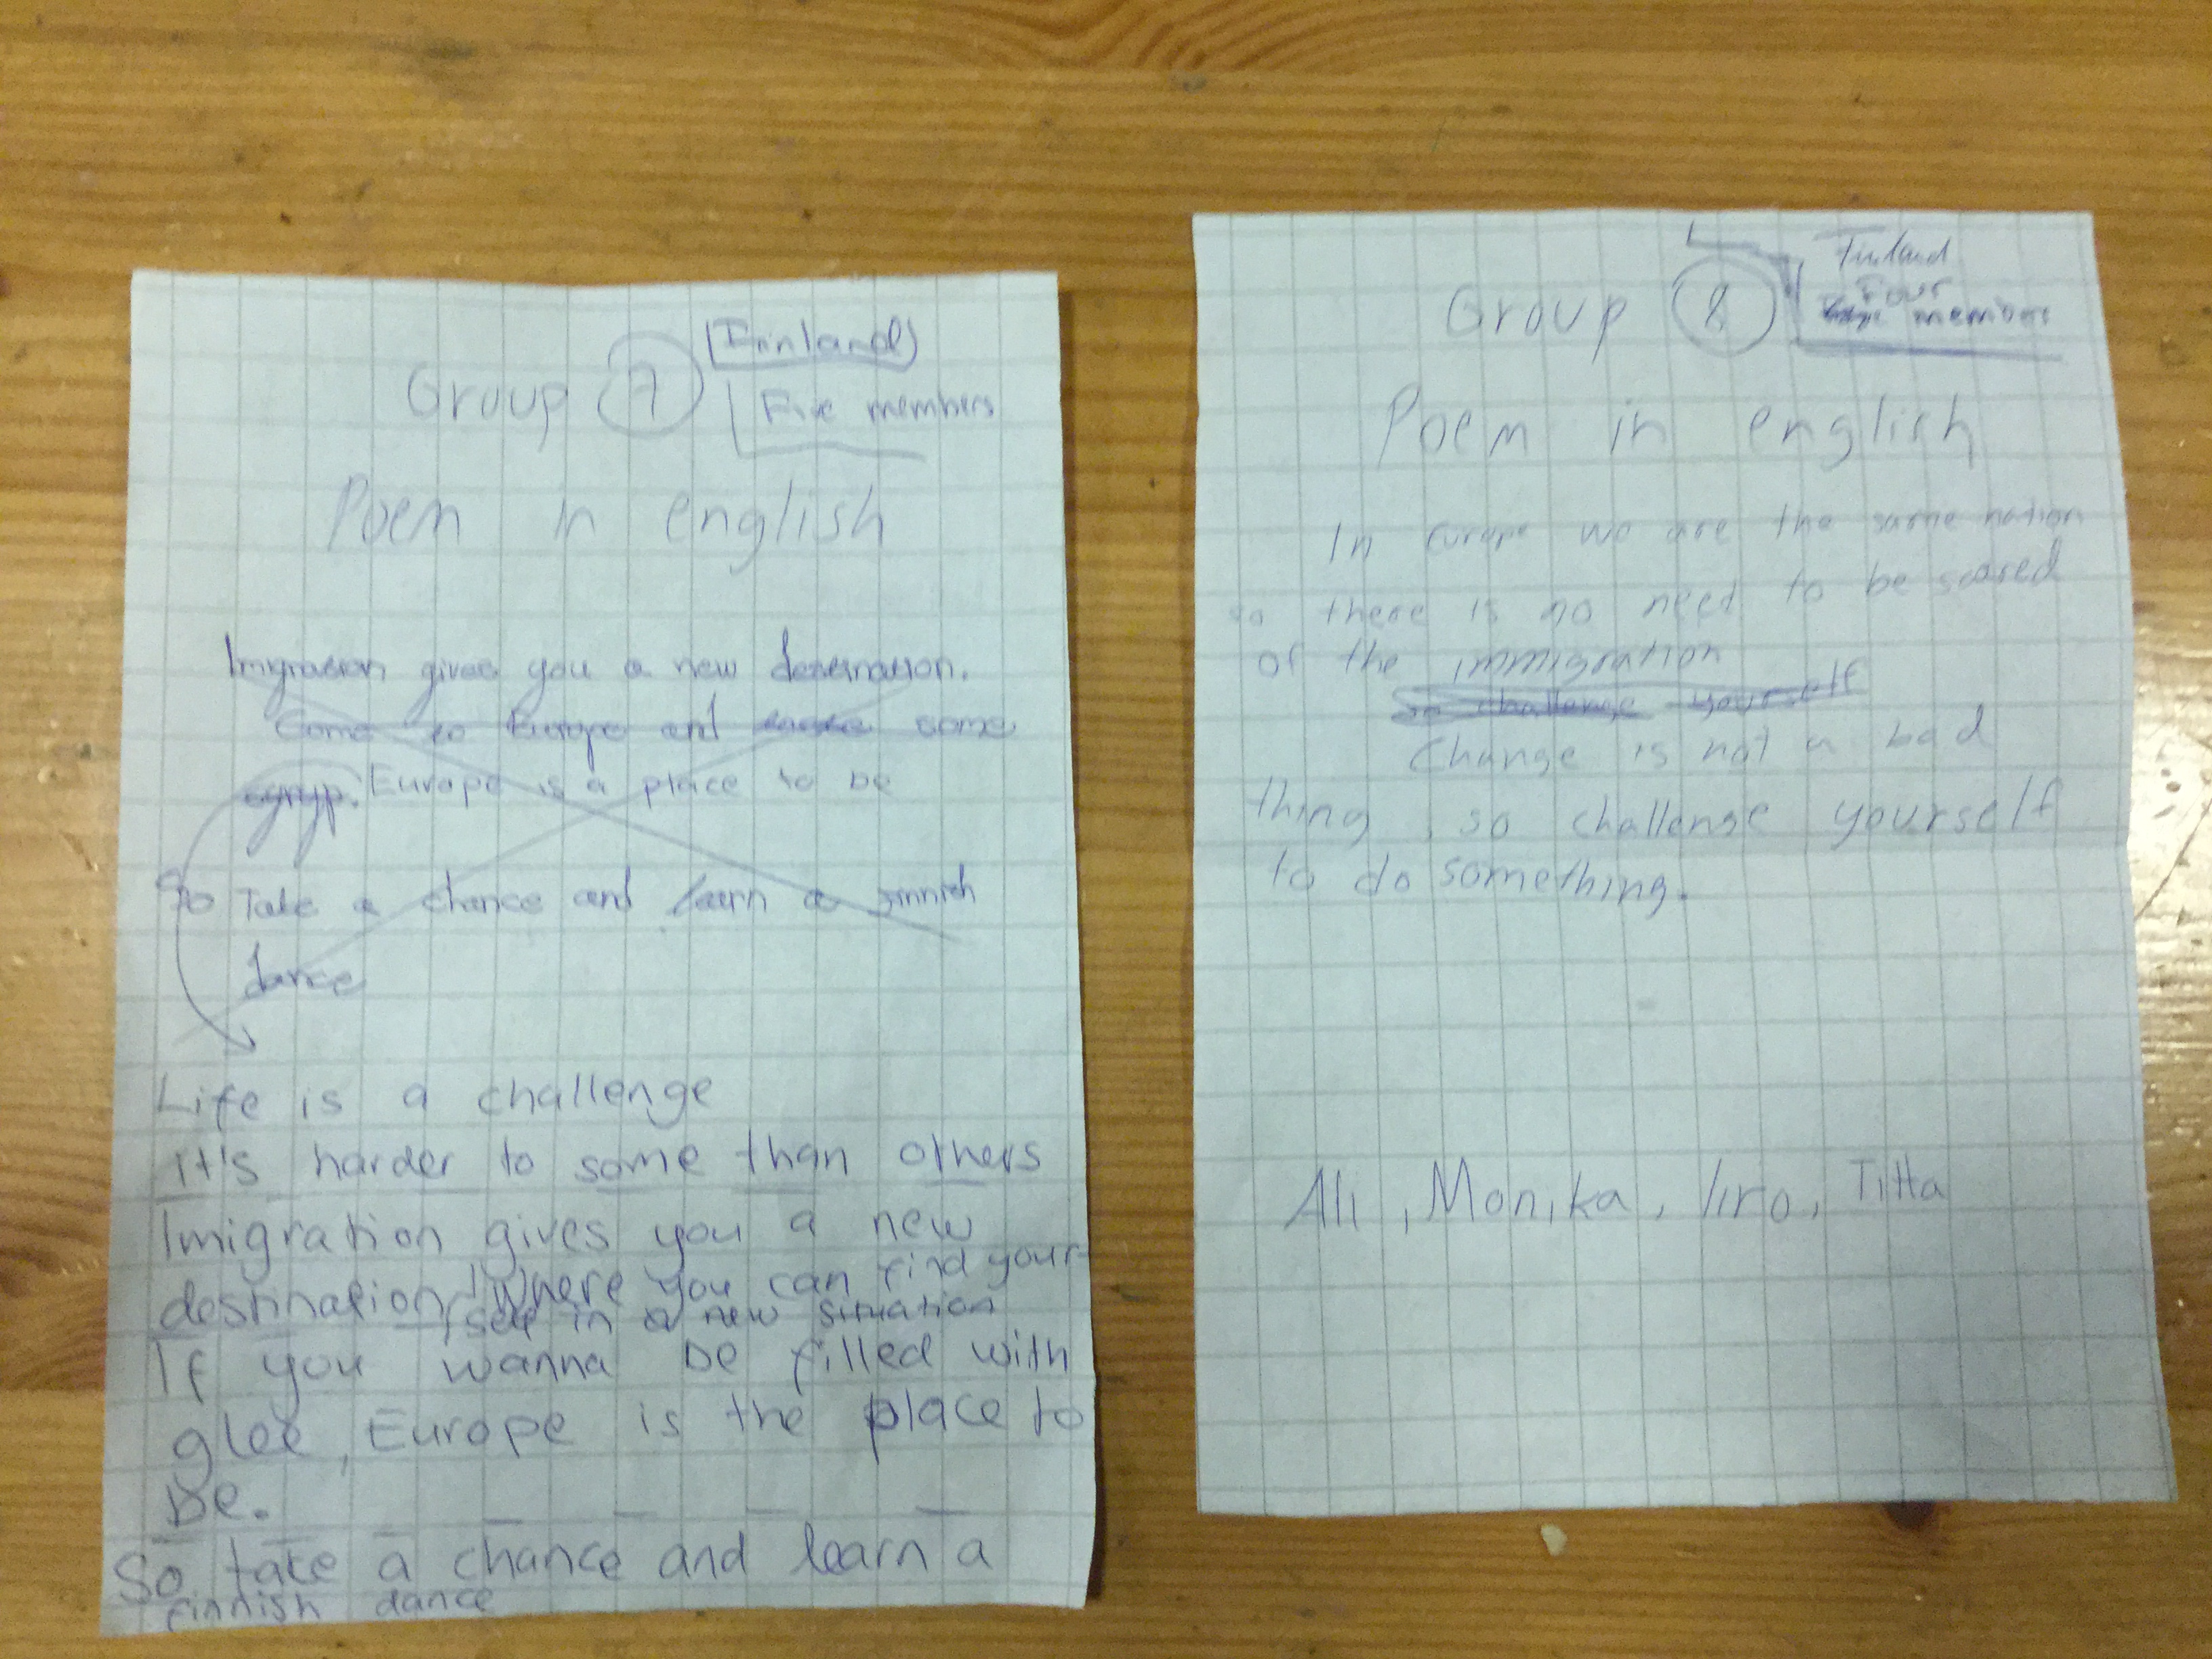 Group 7
(Finland)
Five members
Poem in english
Imigration gives you a new destination.
Come to Europe and some
gyryp. Europe is a place to be
So Take a chance and learn a finnish
dance
Life is a challenge
it's harder to some than others
Imigration gives you a new
destination, where you can find your-
self in a new situation
If you wanna be filled with
glee, Europe is the place to
be.
So take a chance and learn a
finnish dance
Group 8
Finland
Four
members
Poem in english
In Europe we are the same nation
so there is no need to be scared
of the immigration
so challenge yourself
Change is not a bad
thing so challenge yourself
to do something.
Ali, Monika, Iiro, Titta